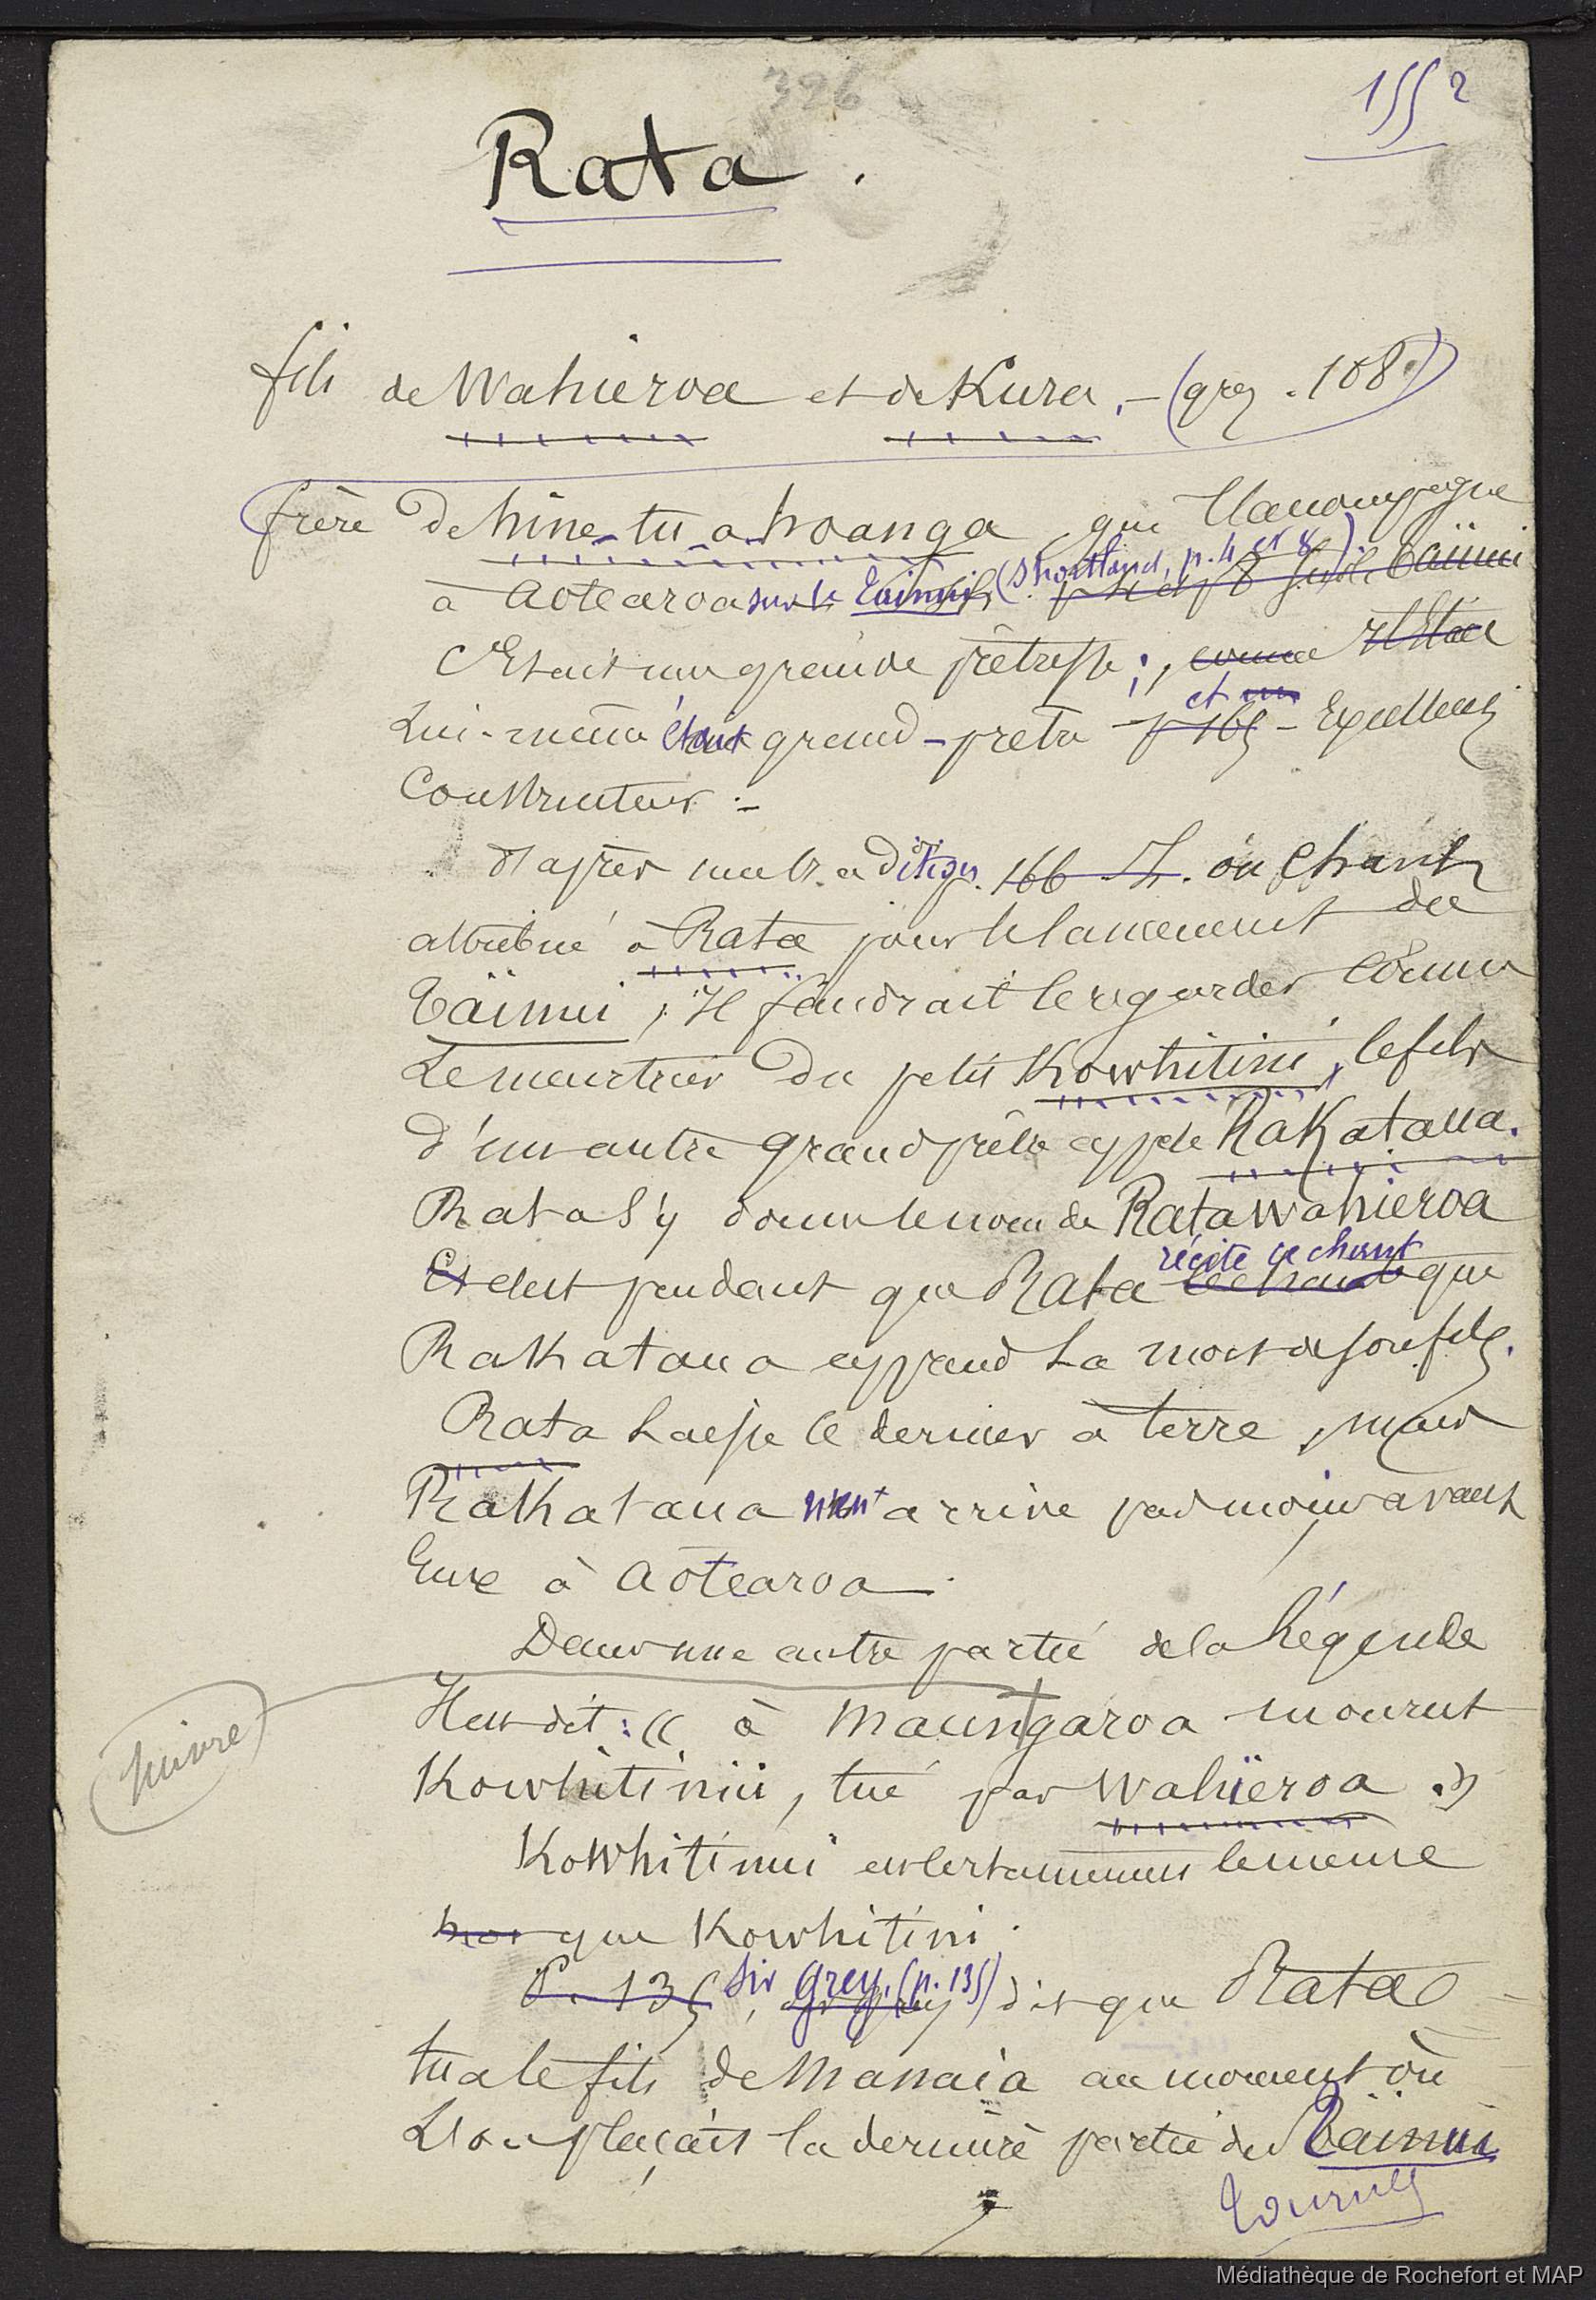 396
1552
Rata.
fils de Wahieroa et de Kura, - (grey. 108)
frère de hine-tu-a-hoanga qui l'accompagne
à Aotearoa sur le Taïnui (Shortland, p. 4 et 8). p. 4 et p 8 sur le Taïnui
C'Etait une grande prêtresse; , comme il Etait
et un
Lui-même étant grand-prêtre - p 165 - Excellent
Constructeur. -
D'après une tradition p. 166 Sh. où chant
attribué à Rata pour le lancement du
Taïnui, Il faudrait le regarder comme
Le meurtrier du petit Kowhitini, le fils
d'un autre grand prêtre appelé Rakataua.
Rata S'y donne le nom de Rata wahieroa
récite ce chant
Et c'est pendant que Rata le chante que
Rakataua apprend La mort de son fils.
Rata Laisse ce dernier à terre, mais
Rakataua n'en arrive pas moins avant
Eux à Aotearoa.
Dans une autre partie de la Légende
Il est dit: « à Maungaroa mourut
Suivre
Kowhitinui, tué par Wahieroa. »
Kowhitinui est certainement le même
que Kowhitini.
P. 135, Sir Grey. (p. 135) dit que Rata
tua le fils de Manaia au moment où
L'on plaçait la dernière partie du Taïnui
Tournez
Médiathèque de Rochefort et MAP